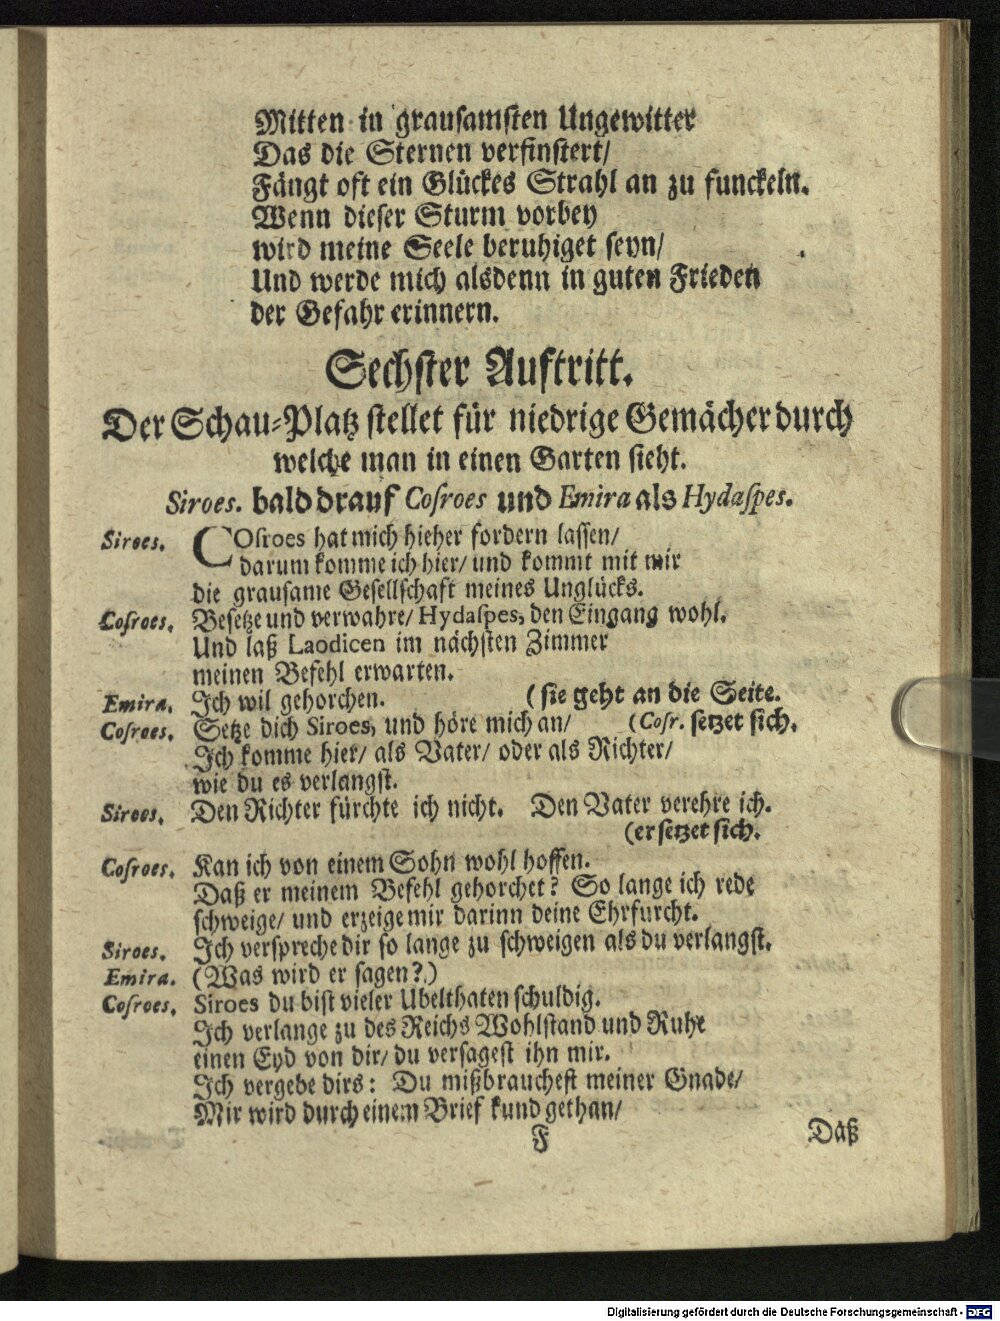 Mitten in grausamsten Ungewitter
Das die Sternen verfinstert/
Fängt oft ein Glückes Strahl an zu funckeln.
Wenn dieser Sturm vorbey
wird meine Seele beruhiget seyn/
Und werde mich alsdenn in guten Frieden
der Gefahr erinnern.
Sechster Auftritt.
Der Schau-Platz stellet für niedrige Gemächer durch
welche man in einen Garten sieht.
Siroes. bald drauf Cosroes und Emira als Hydaspes.
Siroes. COsroes hat mich hieher fordern lassen/
darum komme ich hier/ und kommt mit mir
die grausame Gesellschaft meines Unglücks.
Cosroes. Besetze und verwahre/ Hydaspes, den Eingang wohl.
Und laß Laodicen im nächsten Zimmer
meinen Befehl erwarten.
Emira. Ich wil gehorchen. (sie geht an die Seite.
Cosroes. Setze dich Siroes, und höre mich an/ (Cosr. setzet sich.
Ich komme hier/ als Vater/ oder als Richter/
wie du es verlangst.
Siroes. Den Richter fürchte ich nicht. Den Vater verehre ich.
(er setzet sich.
Cosroes. Kan ich von einem Sohn wohl hoffen.
Daß er meinem Befehl gehorchet? So lange ich rede
schweige/ und erzeige mir darinn deine Ehrfurcht.
Siroes. Ich verspreche dir so lange zu schweigen als du verlangst.
Emira. (Was wird er sagen?)
Cosroes. Siroes du bist vieler Ubelthaten schuldig.
Ich verlange zu des Reichs Wohlstand und Ruhe
einen Eyd von dir/ du versagest ihn mir.
Ich vergebe dirs: Du mißbrauchest meiner Gnade/
Mir wird durch einem Brief kund gethan/
F Daß
Digitalisierung gefördert durch die Deutsche Forschungsgemeinschaft - DFG